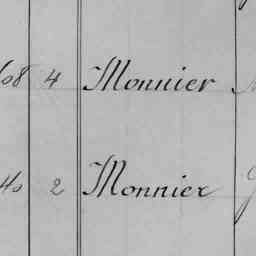 108 4 Monnier
2 Monnier